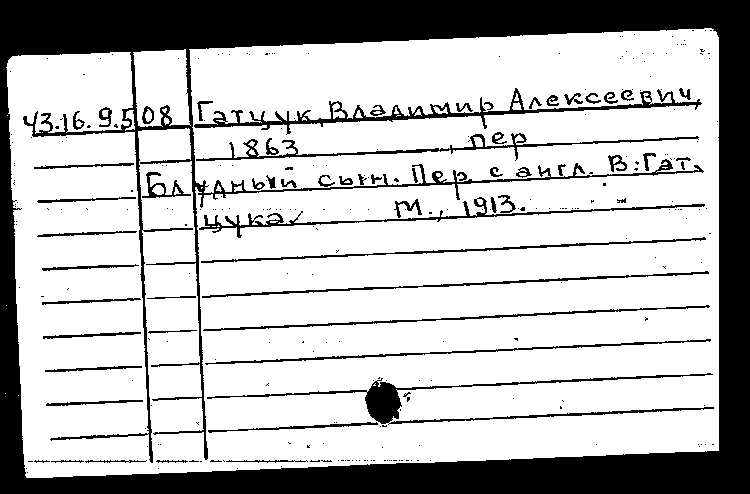 43.16.9.508 Гатцук, Владимир Алексеевич,
1863 , пер
Блудный сын. Пер с англ. В. Гат-
цука. М., 1913.